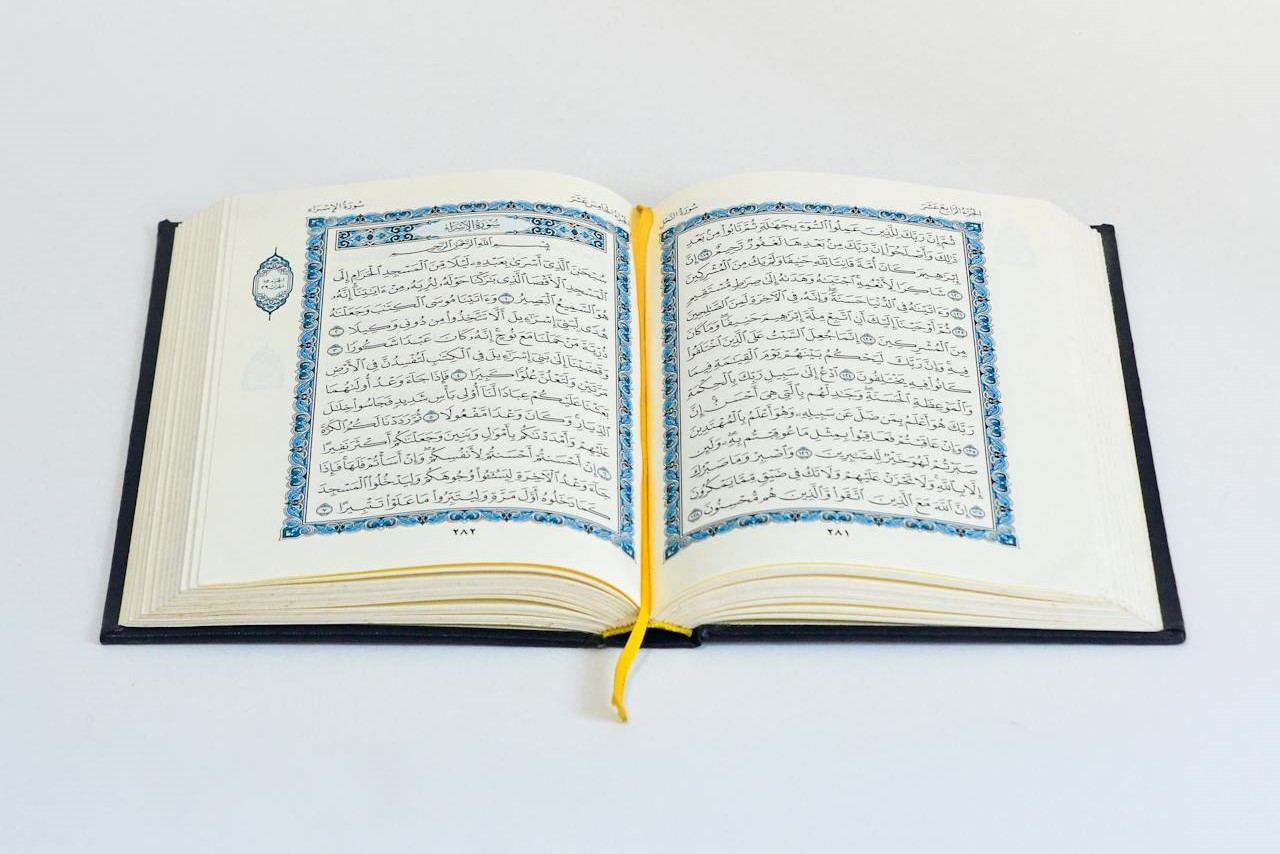 الجُزءُ الرَّابِعَ عَشَرَ سُورَةُ
ثُمَّ إِنَّ رَبَّكَ لِلَّذِينَ عَمِلُواْ ٱلسُّوٓءَ بِجَهَٰلَةٖ ثُمَّ تَابُواْ مِنۢ بَعۡدِ
ذَٰلِكَ وَأَصۡلَحُوٓاْ إِنَّ رَبَّكَ مِنۢ بَعۡدِهَا لَغَفُورٞ رَّحِيمٌ ١١٩ إِنَّ
إِبۡرَٰهِيمَ كَانَ أُمَّةٗ قَانِتٗا لِّلَّهِ حَنِيفٗا وَلَمۡ يَكُ مِنَ ٱلۡمُشۡرِكِينَ
١٢٠ شَاكِرٗا لِّأَنۡعُمِهِۚ ٱجۡتَبَىٰهُ وَهَدَىٰهُ إِلَىٰ صِرَٰطٖ مُّسۡتَقِيمٖ
١٢١ وَءَاتَيۡنَٰهُ فِي ٱلدُّنۡيَا حَسَنَةٗۖ وَإِنَّهُۥ فِي ٱلۡأٓخِرَةِ لَمِنَ ٱلصَّٰلِحِينَ
١٢٢ ثُمَّ أَوۡحَيۡنَآ إِلَيۡكَ أَنِ ٱتَّبِعۡ مِلَّةَ إِبۡرَٰهِيمَ حَنِيفٗاۖ وَمَا كَانَ
مِنَ ٱلۡمُشۡرِكِينَ ١٢٣ إِنَّمَا جُعِلَ ٱلسَّبۡتُ عَلَى ٱلَّذِينَ ٱخۡتَلَفُواْ
فِيهِۚ وَإِنَّ رَبَّكَ لَيَحۡكُمُ بَيۡنَهُمۡ يَوۡمَ ٱلۡقِيَٰمَةِ فِيمَا
كَانُواْ فِيهِ يَخۡتَلِفُونَ ١٢٤ ٱدۡعُ إِلَىٰ سَبِيلِ رَبِّكَ بِٱلۡحِكۡمَةِ
وَٱلۡمَوۡعِظَةِ ٱلۡحَسَنَةِۖ وَجَٰدِلۡهُم بِٱلَّتِي هِيَ أَحۡسَنُۚ إِنَّ
رَبَّكَ هُوَ أَعۡلَمُ بِمَن ضَلَّ عَن سَبِيلِهِۦ وَهُوَ أَعۡلَمُ بِٱلۡمُهۡتَدِينَ
١٢٥ وَإِنۡ عَاقَبۡتُمۡ فَعَاقِبُواْ بِمِثۡلِ مَا عُوقِبۡتُم بِهِۦۖ وَلَئِن
صَبَرۡتُمۡ لَهُوَ خَيۡرٞ لِّلصَّٰبِرِينَ ١٢٦ وَٱصۡبِرۡ وَمَا صَبۡرُكَ
إِلَّا بِٱللَّهِۚ وَلَا تَحۡزَنۡ عَلَيۡهِمۡ وَلَا تَكُ فِي ضَيۡقٖ مِّمَّا يَمۡكُرُونَ
١٢٧ إِنَّ ٱللَّهَ مَعَ ٱلَّذِينَ ٱتَّقَواْ وَّٱلَّذِينَ هُم مُّحۡسِنُونَ ١٢٨
٢٨١
عَشَرَ سُورَةُ الإِسۡرَاءِ
سُورَةُ الإِسۡرَاءِ
بِسۡمِ ٱللَّهِ ٱلرَّحۡمَٰنِ ٱلرَّحِيمِ
سُبۡحَٰنَ ٱلَّذِيٓ أَسۡرَىٰ بِعَبۡدِهِۦ لَيۡلٗا مِّنَ ٱلۡمَسۡجِدِ ٱلۡحَرَامِ إِلَى
ٱلۡمَسۡجِدِ ٱلۡأَقۡصَا ٱلَّذِي بَٰرَكۡنَا حَوۡلَهُۥ لِنُرِيَهُۥ مِنۡ ءَايَٰتِنَآۚ إِنَّهُۥ
هُوَ ٱلسَّمِيعُ ٱلۡبَصِيرُ ١ وَءَاتَيۡنَا مُوسَى ٱلۡكِتَٰبَ وَجَعَلۡنَٰهُ
هُدٗى لِّبَنِيٓ إِسۡرَٰٓءِيلَ أَلَّا تَتَّخِذُواْ مِن دُونِي وَكِيلٗا ٢
ذُرِّيَّةَ مَنۡ حَمَلۡنَا مَعَ نُوحٍۚ إِنَّهُۥ كَانَ عَبۡدٗا شَكُورٗا ٣
وَقَضَيۡنَآ إِلَىٰ بَنِيٓ إِسۡرَٰٓءِيلَ فِي ٱلۡكِتَٰبِ لَتُفۡسِدُنَّ فِي ٱلۡأَرۡضِ
مَرَّتَيۡنِ وَلَتَعۡلُنَّ عُلُوّٗا كَبِيرٗا ٤ فَإِذَا جَآءَ وَعۡدُ أُولَىٰهُمَا
بَعَثۡنَا عَلَيۡكُمۡ عِبَادٗا لَّنَآ أُوْلِي بَأۡسٖ شَدِيدٖ فَجَاسُواْ خِلَٰلَ
ٱلدِّيَارِۚ وَكَانَ وَعۡدٗا مَّفۡعُولٗا ٥ ثُمَّ رَدَدۡنَا لَكُمُ ٱلۡكَرَّةَ
عَلَيۡهِمۡ وَأَمۡدَدۡنَٰكُم بِأَمۡوَٰلٖ وَبَنِينَ وَجَعَلۡنَٰكُمۡ أَكۡثَرَ نَفِيرًا
٦ إِنۡ أَحۡسَنتُمۡ أَحۡسَنتُمۡ لِأَنفُسِكُمۡۖ وَإِنۡ أَسَأۡتُمۡ فَلَهَاۚ فَإِذَا
جَآءَ وَعۡدُ ٱلۡأٓخِرَةِ لِيَسُـُٔواْ وُجُوهَكُمۡ وَلِيَدۡخُلُواْ ٱلۡمَسۡجِدَ
كَمَا دَخَلُوهُ أَوَّلَ مَرَّةٖ وَلِيُتَبِّرُواْ مَا عَلَوۡاْ تَتۡبِيرًا ٧
٢٨٢